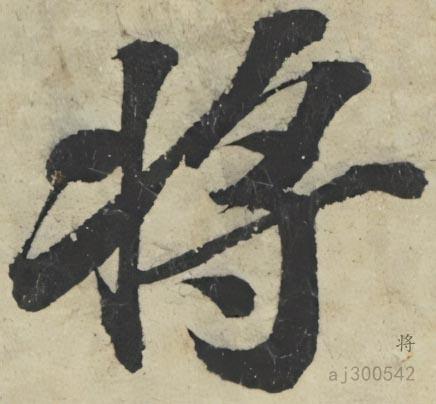 将
将
aj300542